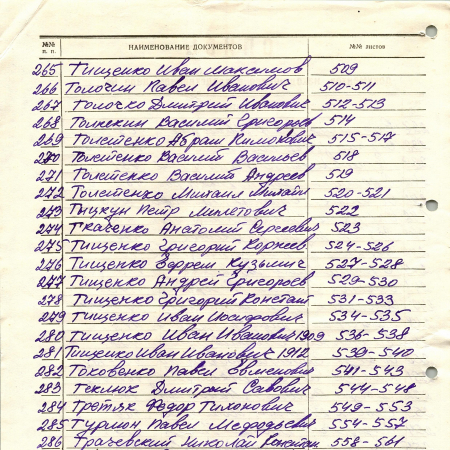 №№ п. п. НАИМЕНОВАНИЕ ДОКУМЕНТОВ №№ листов
265 Тищенко Иван Максимов 509
266 Толочин Павел Иванович 510-511
267 Толочко Дмитрий Иванович 512-513
268 Толпекин Василий Григоров 514
269 Толстенко Абрам Климович 515-517
270 Толстенко Василий Васильев 518
271 Толстенко Василий Андреев 519
272 Толстенко Михаил Михайл 520-521
273 Тыцкун Петр Милетович 522
274 Ткаченко Анатолий Сергеевич 523
275 Тищенко Григорий Корнеев 524-526
276 Тищенко Ефрем Кузьмич 527-528
277 Тищенко Андрей Григоров 529-530
278 Тищенко Григорий Констант 531-533
279 Тищенко Иван Иосифович 534-535
280 Тищенко Иван Иванович 1909 536-538
281 Тищенко Иван Иванович 1912 539-540
282 Токовенко Павел Евменович 541-543
283 Теклюк Дмитрий Савович 544-548
284 Третяк Федор Тихонович 549-553
285 Турлюн Павел 554-557
286 Трачевский Николай Констан 558-561